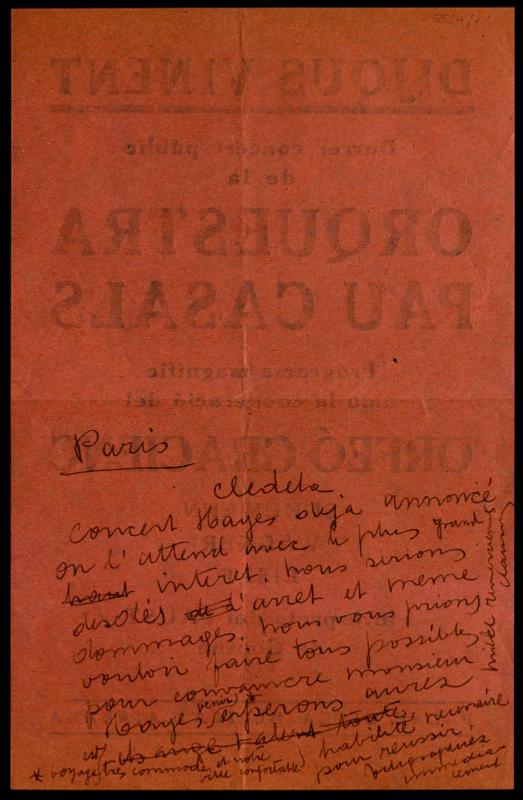 3524/1
DIJOUS VINENT
Darrer concert públic
de la
ORQUESTRA
PAU CASALS
Programa magnífic
amb la cooperació del
ORFEÓ GRACIENC
Paris
Cledela
concert Hayes deja annoncé
on l'attend avec le plus grand
haut interet. nous serions
desolés de l'arret et meme
dommages. nous vous prions
vouloir faire tous possibles
pour convaincre monsieur
Hayes venir * esperons aurez
toute habilité necessaire
pour reussir.
telegraphiez
immediatement
mille remerciements
* voyage est très commode et notre
ville confortable